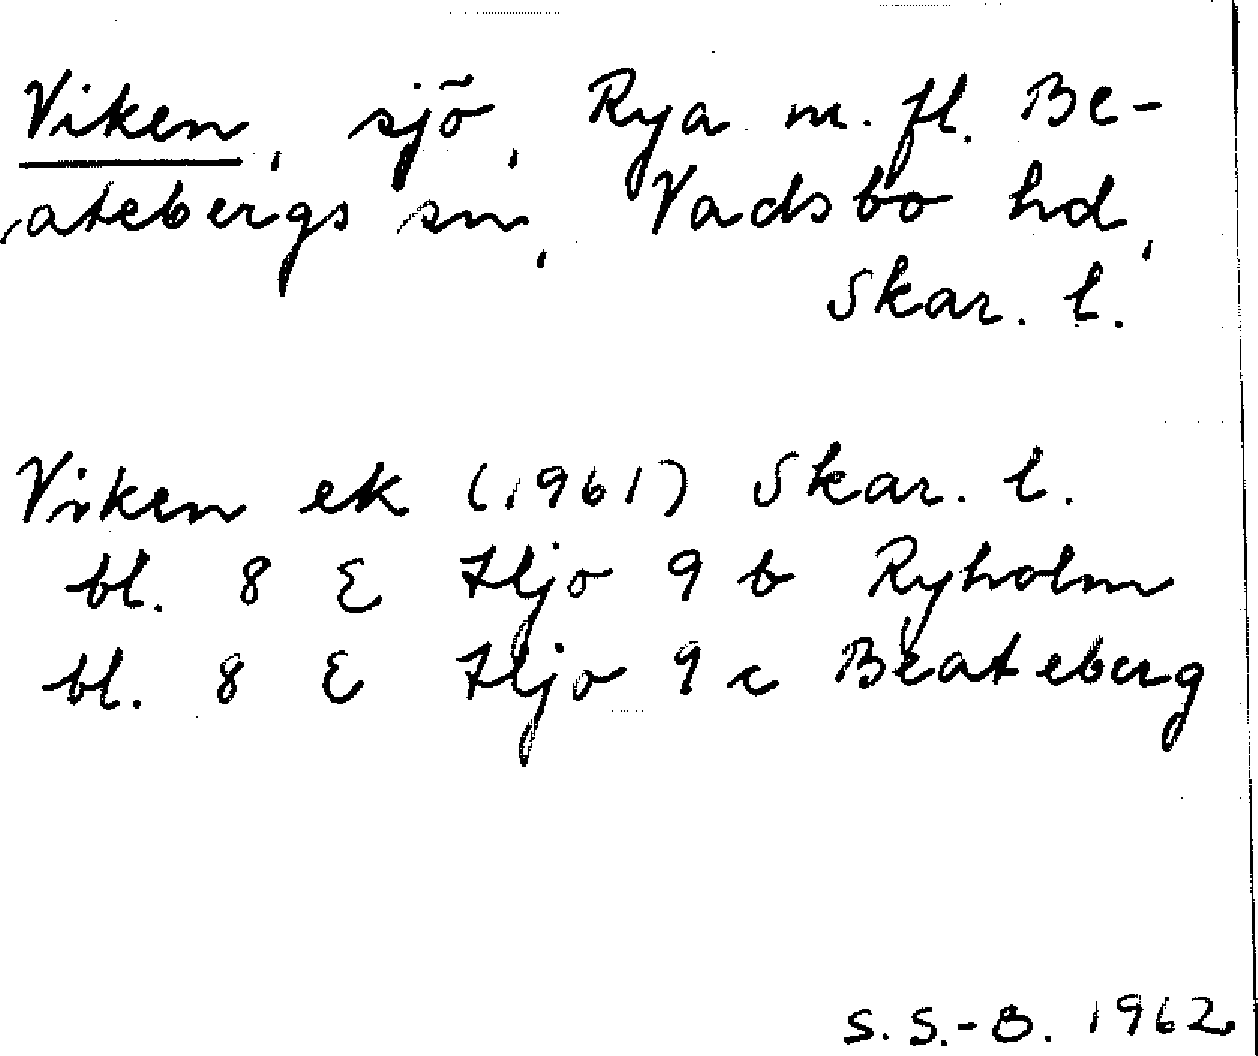 Viken, sjö, Rya m. fl. Be-
atebergs sn, Vadsbo hd,
Skar. l.
Viken ek (1961) Skar. l.
bl. 8 E Hjo 9 b Ryholm
bl. 8 E Hjo 9 c Beateberg
S. S.-B. 1962